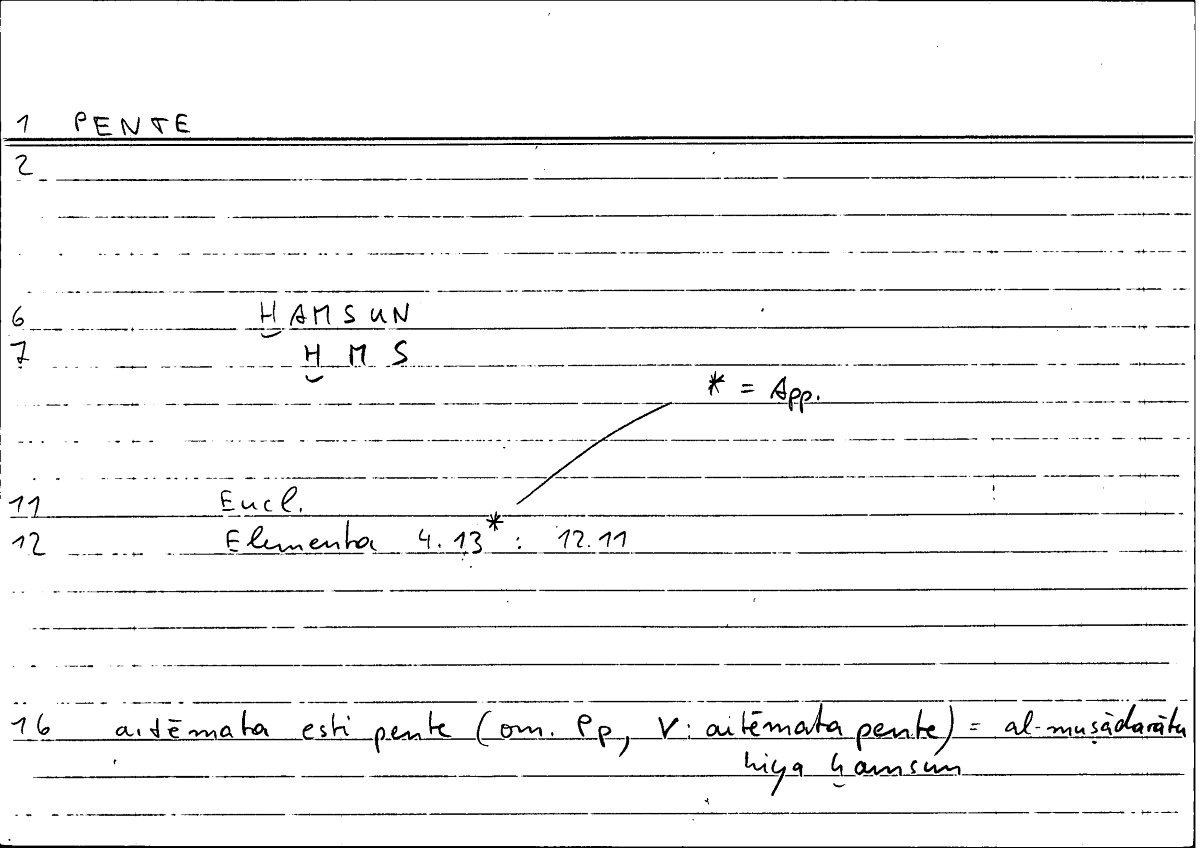 1 PENTE
2
6 ḪAMSUN
7 Ḫ M S
* = App.
11 Eucl.
12 Elementa 4.13* : 12.11
16 aitēmata esti pente (om. Pp, V: aitēmata pente) = al-muṣādarātu
hiya ḫamsun